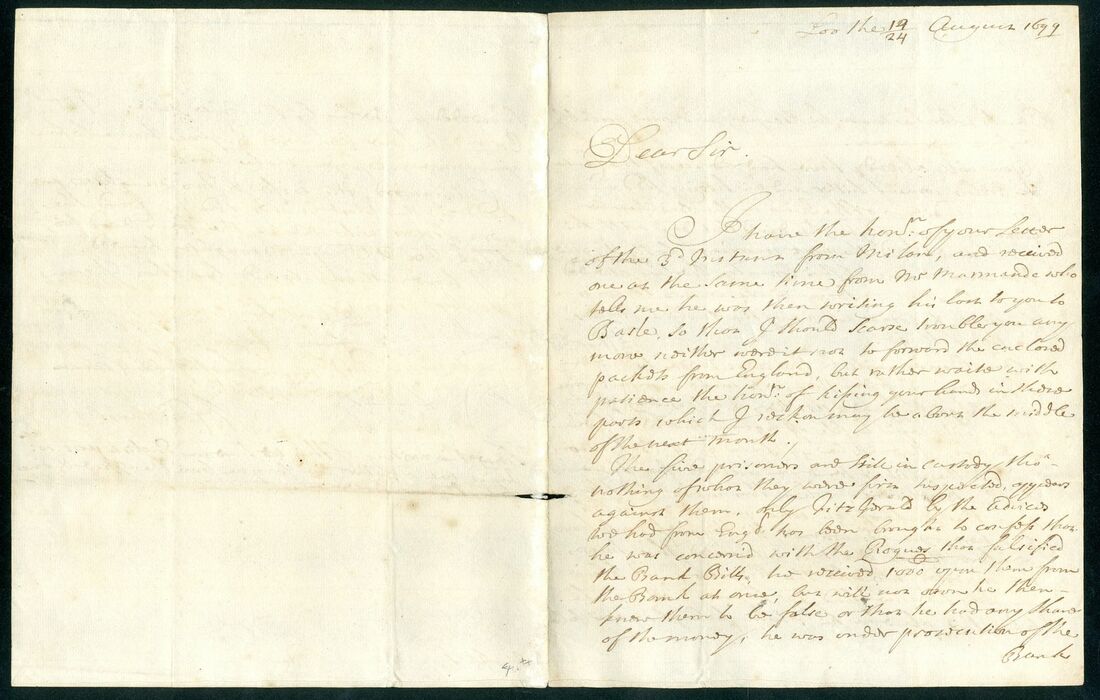 Loo the 19/24 August 1699
Dear Sir.
I have the honr. of your Letter
of the 3d Instant from Milan, and received
one at the same time from Mr Marmande who
tells me he was then writing his last to you to
Basle, so that I should scarse trouble you any
more, neither were it not to forward the enclosed
packets from England, but rather waite with
patience the honr. of kissing your hands in these
parts which I reckon may be about the middle
of the next Month,
The five prisoners are still in custody, tho'
nothing of what they were first suspected, appears
against them, only Fitz Gerald by the advices
we had from Engld. has been brought to confess that
he was concern'd with the Rogues that falsified
the Bank Bills, he received 1000 upon them from
the Bank at once, but will not own he then
knew them to be false or that he had any share
of the money, he was under prosecution of the
Bank
4